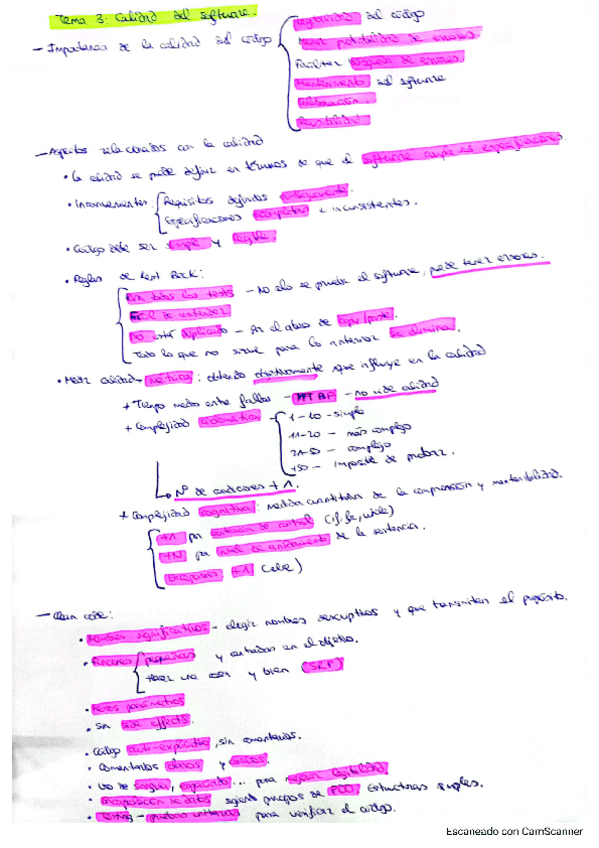 Tema 3: Calidad del software.
— Importancia de la calidad del código
Legibilidad del código
Menor probabilidad de errores
Facilitar búsqueda de errores
Mantenimiento del software
Colaboración
Reusabilidad
— Aspectos relacionados con la calidad
• La calidad se puede definir en términos de que el software cumple las especificaciones
• Inconvenientes:
Requisitos definidos ambiguamente.
Especificaciones completas e inconsistentes.
• Código debe ser simple y legible.
• Reglas de Kent Beck:
Pasa todos los tests — No solo se prueba el software, puede tener errores.
Fácil de entender
No está duplicado — En el abuso de copy/paste.
Todo lo que no sirve para lo anterior se elimina.
• Medir calidad → métrica: obtenido objetivamente que influye en la calidad
+ Tiempo medio entre fallos — MTBF — no mide calidad
+ Complejidad ciclomática
1-10 - simple
11-20 - más complejo
21-50 - complejo
+50 - imposible de probar.
↳ Nº de condiciones + 1.
+ Complejidad cognitiva: medida cuantitativa de la comprensión y mantenibilidad.
+1 por sentencia de control (if, for, while)
+N por nivel de anidamiento de la sentencia.
Excepciones +1 (else)
— Clean code:
• Nombres significativos — elegir nombres descriptivos y que transmiten el propósito.
• Funciones
pequeñas y centradas en el objetivo.
Hacer una cosa y bien (SRP)
• Pocos parámetros
• Sin side effects.
• Código auto-explicativo, sin comentarios.
• Comentarios claros y
• Uso de sangrías, espaciado... para mejorar legibilidad.
• Encapsulación de datos según principios de POO, Estructuras simples.
• Testing — pruebas unitarias para verificar el código.
Escaneado con CamScanner